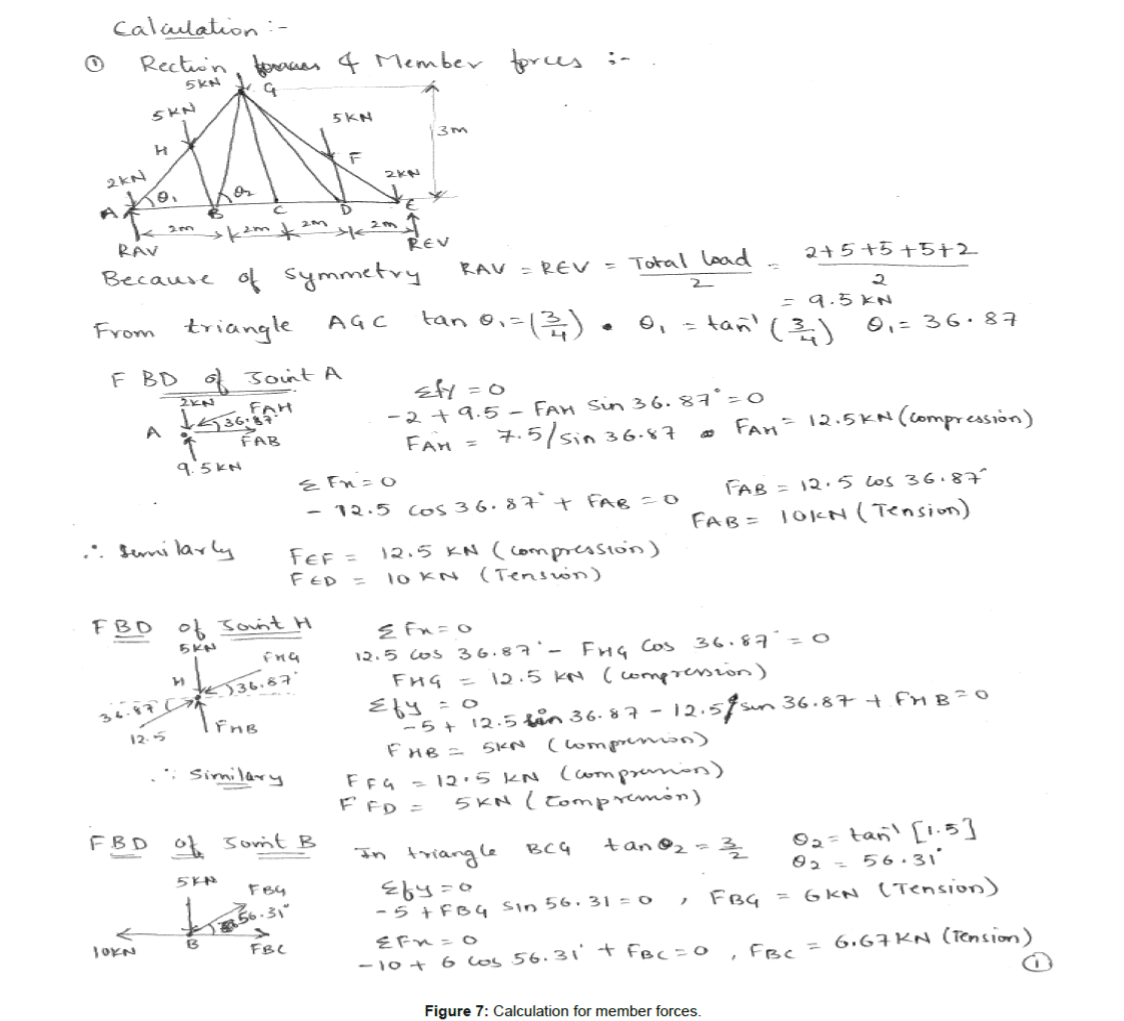 Calculation :-
① Rection forces & Member forces :-
5KN G
5KN
5KN
3m
H
F
2KN
2KN
θ₁ θ₂
A B C D E
2m 2m 2m 2m
RAV REV
Because of symmetry RAV = REV = Total load / 2 = 2+5+5+5+2 / 2
= 9.5 KN
From triangle AGC tan θ₁ = (3/4) • θ₁ = tan⁻¹ (3/4) θ₁ = 36.87
FBD of Joint A
2KN FAH
36.87°
A FAB
9.5KN
Σfy = 0
-2 + 9.5 - FAH Sin 36.87° = 0
FAH = 7.5/Sin 36.87 FAH = 12.5KN (compression)
ΣFx = 0
- 12.5 cos 36.87° + FAB = 0 FAB = 12.5 cos 36.87°
FAB = 10KN (Tension)
∴ Similarly FEF = 12.5 KN (compression)
FED = 10 KN (Tension)
FBD of Joint H
5KN
FHG
H 36.87°
36.87
12.5 FHB
ΣFx = 0
12.5 cos 36.87° - FHG Cos 36.87° = 0
FHG = 12.5 KN (compression)
Σfy = 0
-5 + 12.5 sin 36.87 - 12.5 sin 36.87 + FHB = 0
FHB = 5KN (compression)
∴ Similary FFG = 12.5 KN (compression)
FFD = 5KN (compression)
FBD of Joint B In triangle BCG tan θ₂ = 3/2 θ₂ = tan⁻¹ [1.5]
θ₂ = 56.31°
5KN FBG
56.31°
10KN B FBC
Σfy = 0
-5 + FBG Sin 56.31 = 0 , FBG = 6KN (Tension)
ΣFx = 0
-10 + 6 cos 56.31° + FBC = 0 , FBC = 6.67KN (Tension)
①
Figure 7: Calculation for member forces.